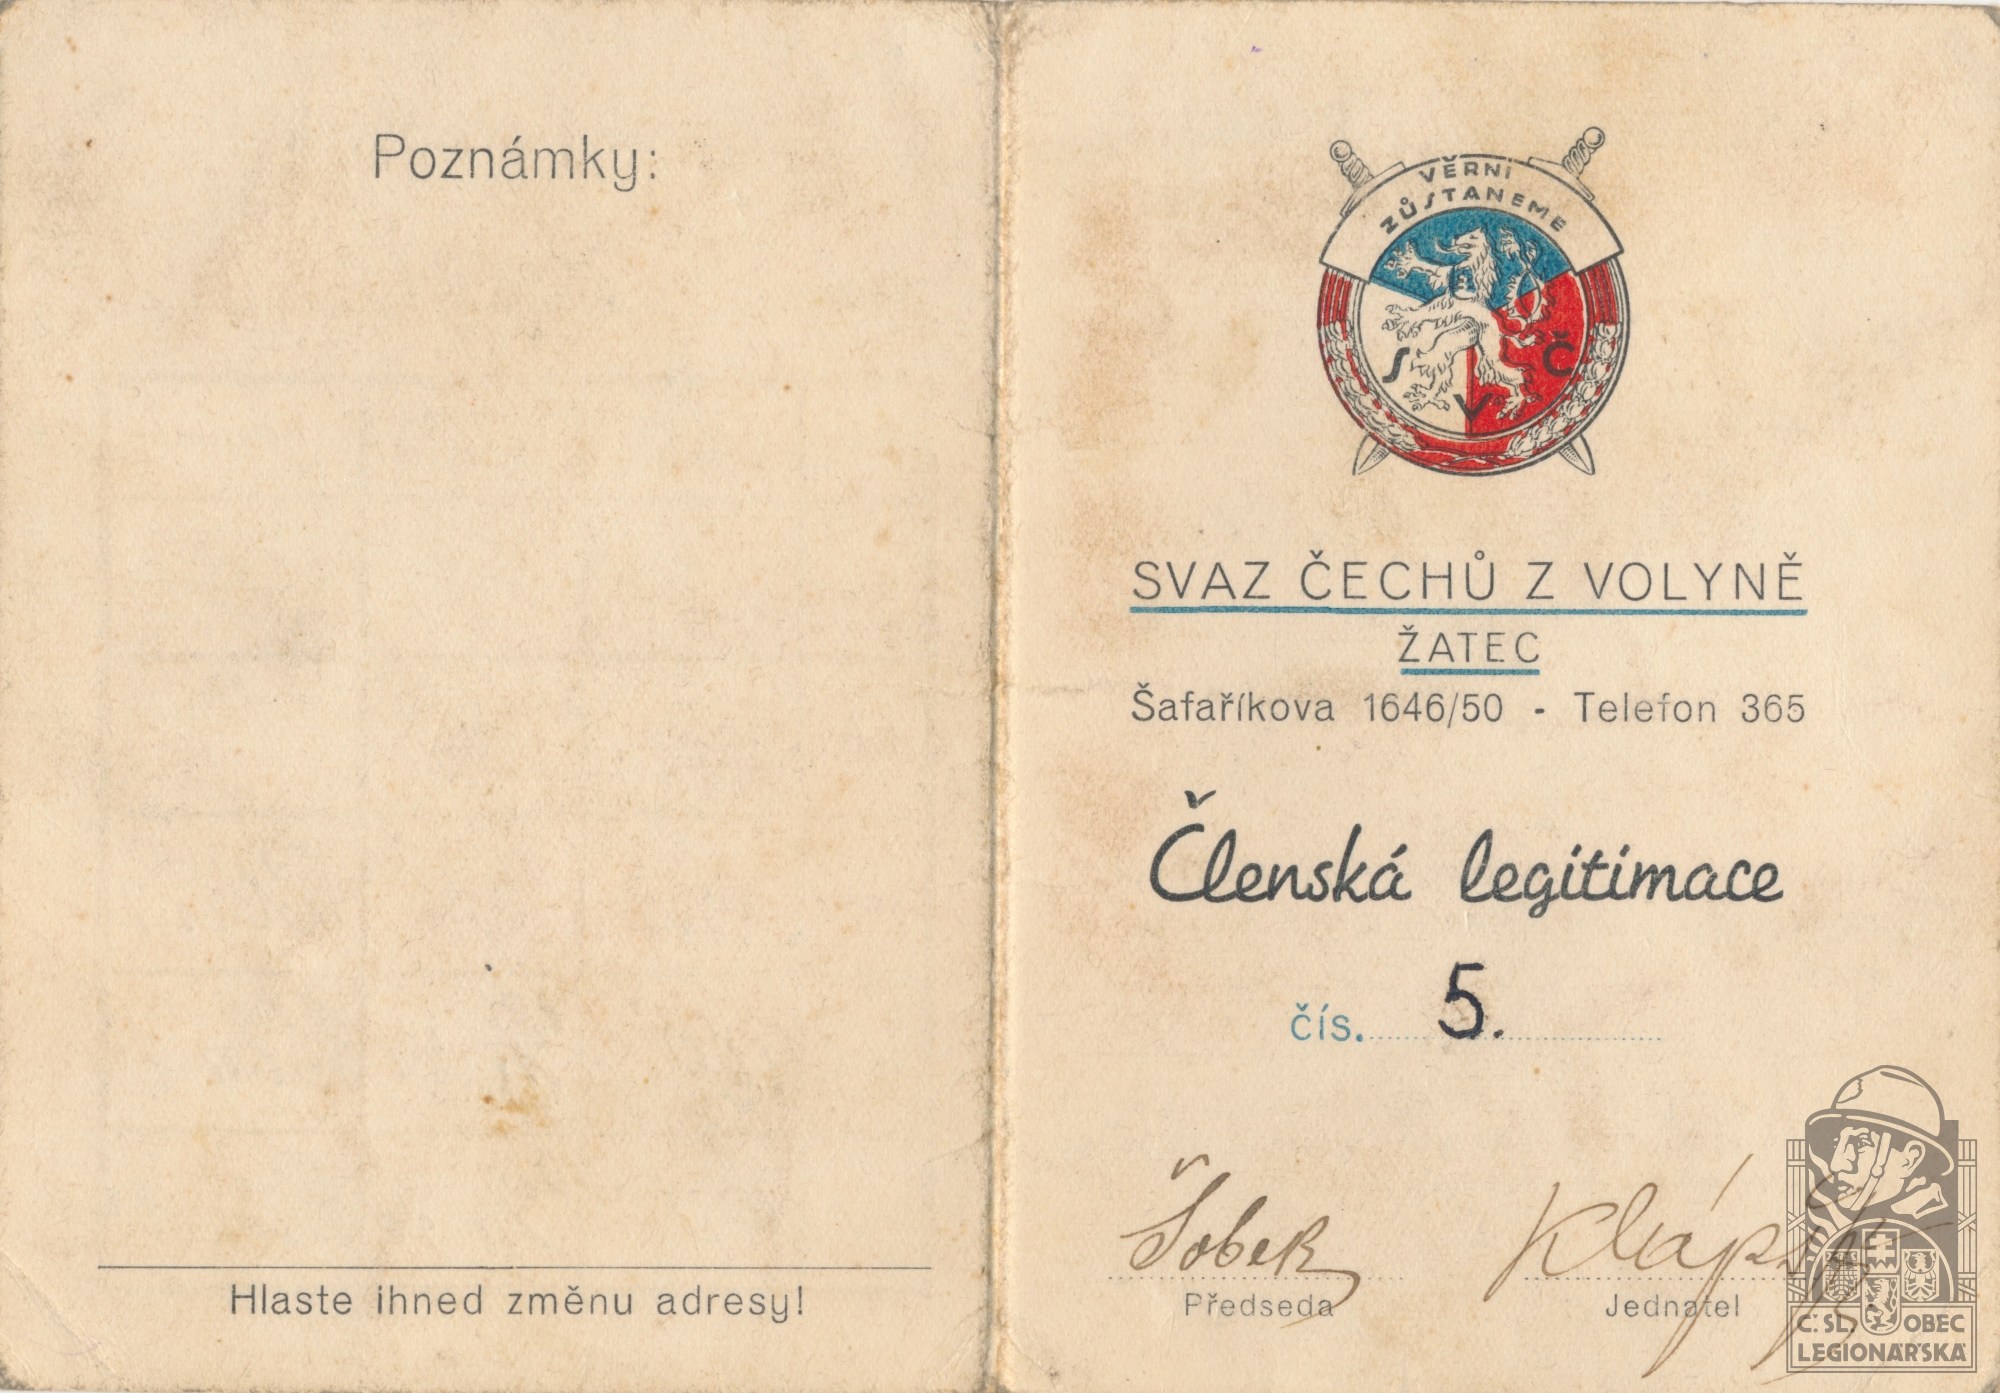 Poznámky:
Hlaste ihned změnu adresy!
VĚRNI
ZŮSTANEME
S V Č
SVAZ ČECHŮ Z VOLYNĚ
ŽATEC
Šafaříkova 1646/50 - Telefon 365
Členská legitimace
čís. 5.
Šobek
Předseda Jednatel
Č. SL. OBEC
LEGIONÁŘSKÁ